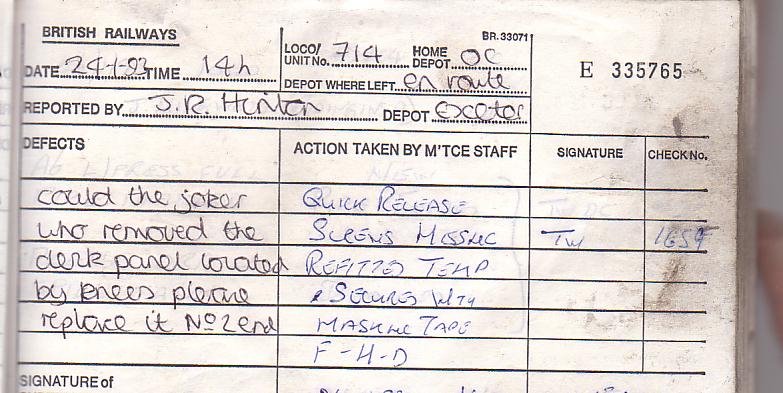 BRITISH RAILWAYS
BR. 33071
LOCO/ UNIT No. 714 HOME DEPOT OC
E 335765
DATE 24-1-93 TIME 14h
DEPOT WHERE LEFT en route
REPORTED BY J.R. DEPOT Exeter
DEFECTS ACTION TAKEN BY M'TCE STAFF SIGNATURE CHECK No.
could the joker QUICK RELEASE
who removed the SCREWS MISSING TW
desk panel located REFITTED TEMP
by knees please & SECURED WITH
replace it No 2 end MASKING TAPE
F-H-D
SIGNATURE of